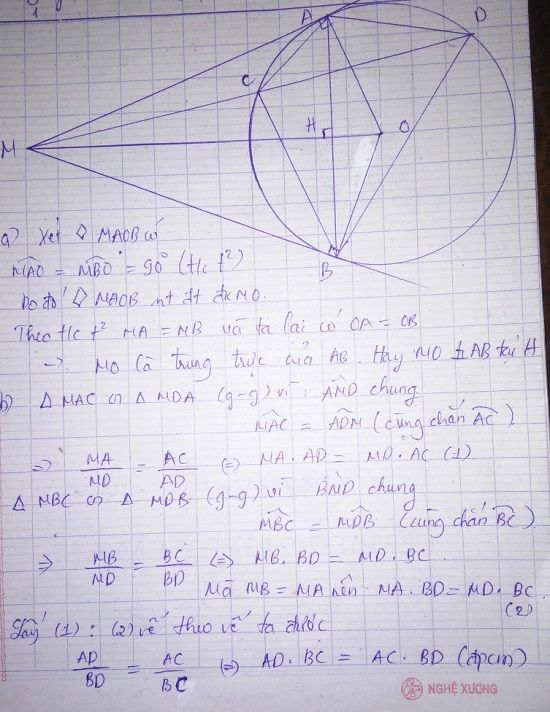 A
D
C
M
H
O
B
a) Xét ◊ MAOB có
$\widehat{MAO} = \widehat{MBO} = 90°$ (t/c t²)
Do đó ◊ MAOB nt đt đk MO.
Theo t/c t² MA = MB và ta lại có OA = OB
→ MO là trung trực của AB. Hay MO ⊥ AB tại H
b) Δ MAC ∽ Δ MDA (g-g) vì: $\widehat{AMD}$ chung
$\widehat{MAC} = \widehat{ADM}$ (cùng chắn $\widehat{AC}$)
⇒ $\frac{MA}{MD} = \frac{AC}{AD}$ ⇔ MA . AD = MD . AC (1)
Δ MBC ∽ Δ MDB (g-g) vì $\widehat{BMD}$ chung
$\widehat{MBC} = \widehat{MDB}$ (cùng chắn $\widehat{BC}$)
⇒ $\frac{MB}{MD} = \frac{BC}{BD}$ ⇔ MB. BD = MD . BC .
Mà MB = MA nên MA . BD = MD . BC
(2)
Lấy (1) : (2) vế theo vế ta được
$\frac{AD}{BD} = \frac{AC}{BC}$ ⇔ AD . BC = AC . BD (đpcm)
NGHỆ XƯƠNG